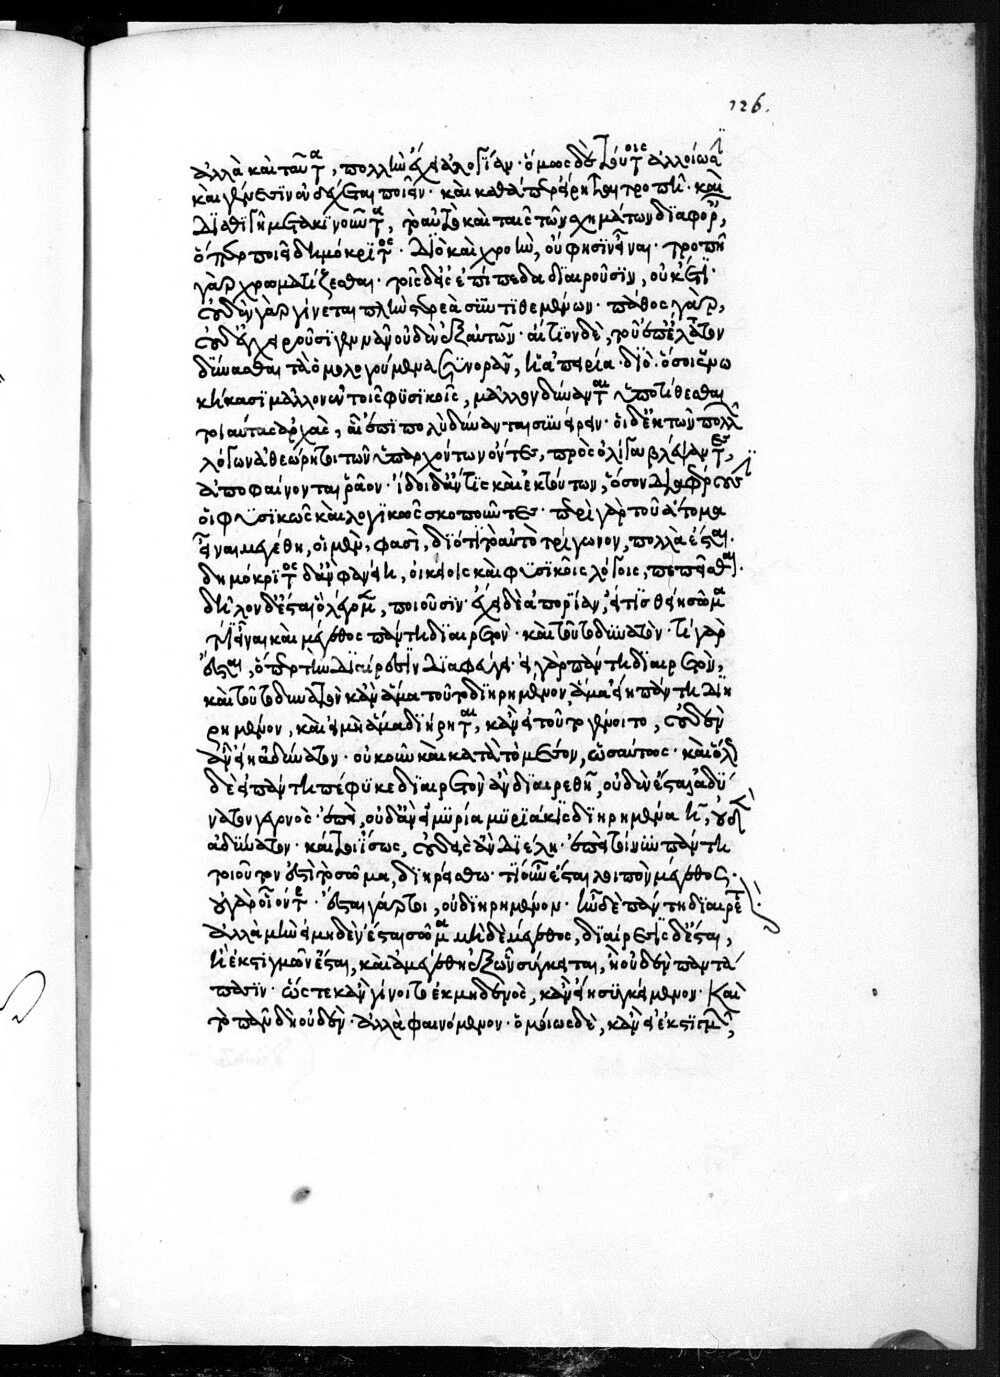 ἀλλὰ καὶ ταῦτα, πολλὴν ἔχει ἀλογίαν· ὅμως δὲ τούτοις ἀλλοίωσι
καὶ γένεσιν ἐνδέχεται ποιεῖν· καὶ καθάπερ εἴρηται τροπῆ· καὶ
διαθιγῆ μετακινοῦντα, τὸ αὐτὸ καὶ ταῖς τῶν σχημάτων διαφορ,
ὅπερ ποιεῖ δημόκριτος· διὸ καὶ χροιὴν, οὔ φησιν εἶναι· τροπῆ
γὰρ χρωματίζεσθαι· τοῖς δ' εἰς ἐπίπεδα διαιροῦσιν, οὐκέτι·
οὐδὲν γὰρ γίνεται πλὴν στερεὰ συντιθεμένων· πάθος γὰρ,
οὐδ' ἐγχειροῦσι γεννᾶν οὐδὲν ἐξ αὐτῶν· αἴτιον δὲ, τοῦ ἐπ' ἔλαττον
δύνασθαι τὰ ὁμολογούμενα συνορᾶν, ἡ ἀπειρία· διὸ· ὅσοι ἐνω
κήκασι μᾶλλον ἐν τοῖς φυσικοῖς, μᾶλλον δύνανται ὑποτίθεσθαι
τοιαύτας ἀρχὰς, αἳ ἐπὶ πολὺ δύνανται συνείρειν· οἱ δ' ἐκ τῶν πολλῶ
λόγων ἀθεώρητοι τῶν ὑπαρχόντων ὄντες, πρὸς ὀλίγα βλέψαντες,
ἀποφαίνονται ῥᾶον· ἴδοι δ' ἄν τις καὶ ἐκ τούτων, ὅσον διαφέρουσι
οἱ φυσικῶς καὶ λογικῶς σκοποῦντες· περὶ γὰρ τοῦ ἄτομα
εἶναι μεγέθη, οἱ μέν, φασὶ, διότι τὸ αὐτὸ τρίγωνον, πολλὰ ἔσται·
δημόκριτος δ' ἂν φανείη, οἰκείοις καὶ φυσικοῖς λόγοις, πεπεῖσθαι·
δῆλον δ' ἔσται ὃ λέγομ, ποιοῦσιν· ἔχει δὲ ἀπορίαν, εἴ τις θείη σῶμα
τι εἶναι καὶ μέγεθος πάντη διαιρετόν· καὶ τοῦτο δυνατὸν· τί γὰρ
ἔσται, ὅπερ τὴν διαίρεσιν διαφεύγει· εἰ γὰρ πάντη διαιρετὸν,
καὶ τοῦτο δυνατὸν κἂν ἅμα τοῦτο διηρημένον ἅμα εἴη πάντη διη
ρημένον, καὶ εἰ μὴ ἅμα διήρηται, κἂν εἰ τοῦτο γένοιτο, οὐδὲν
ἂν εἴη ἀδύνατον· οὐκοῦν καὶ κατὰ τὸ μέσον, ὡσαύτως· καὶ ὅλ
δὲ εἰ πάντη πέφυκε διαιρετὸν ἂν διαιρεθῆ, οὐδὲν ἔσται ἀδύ
νατον γεγονὸς· ἐπεὶ, οὐδ' ἂν εἰ μυρία μυριάκις διηρημένα ἦ, οὐδ
ἀδύνατον· καίτοι ἴσως, οὐδεὶς ἂν διέλη· ἐπεὶ τοίνυν πάντη
τοιοῦτον ἐστὶ τὸ σῶμα, διηρήσθω· τί οὖν ἔσται λοιπὸν μέγεθος·
οὐ γὰρ οἷόντε· ἔσται γάρ τι, οὐ διηρημένον· ἦν δὲ πάντη διαιρετ
ἀλλὰ μὴν εἰ μηδὲν ἔσται σῶμα μηδὲ μέγεθος, διαίρεσις δ' ἔσται,
ἢ ἐκ στιγμῶν ἔσται, καὶ ἀμεγέθη ἐξ ὧν σύγκειται, ἢ οὐδὲν παντά
πασιν· ὥστε κἂν γίνοιτο ἐκ μηδενὸς, κἂν εἴη συγκείμενον· καὶ
τὸ πᾶν δὴ οὐδὲν· ἀλλὰ φαινόμενον· ὁμοίως δὲ, κἂν ἦ ἐκ στιγμ,